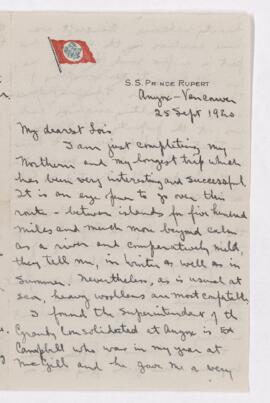 S.S. PRINCE RUPERT
Anyox - Vancouver
25 Sept 1920
My dearest Lois
I am just completing my
Northern and my longest trip which
has been very interesting and successful
It is an eye opener to go over this
route - between islands for five hundred
miles and much more beyond calm
as a river and comparatively mild,
they tell me, in winter as well as in
Summer. Nevertheless, as is usual at
sea, heavy woollens are most acceptable
I found the Superintendent of the
Granby Consolidated at Anyox is Ed
Campbell who was in my year at
McGill and he gave me a very